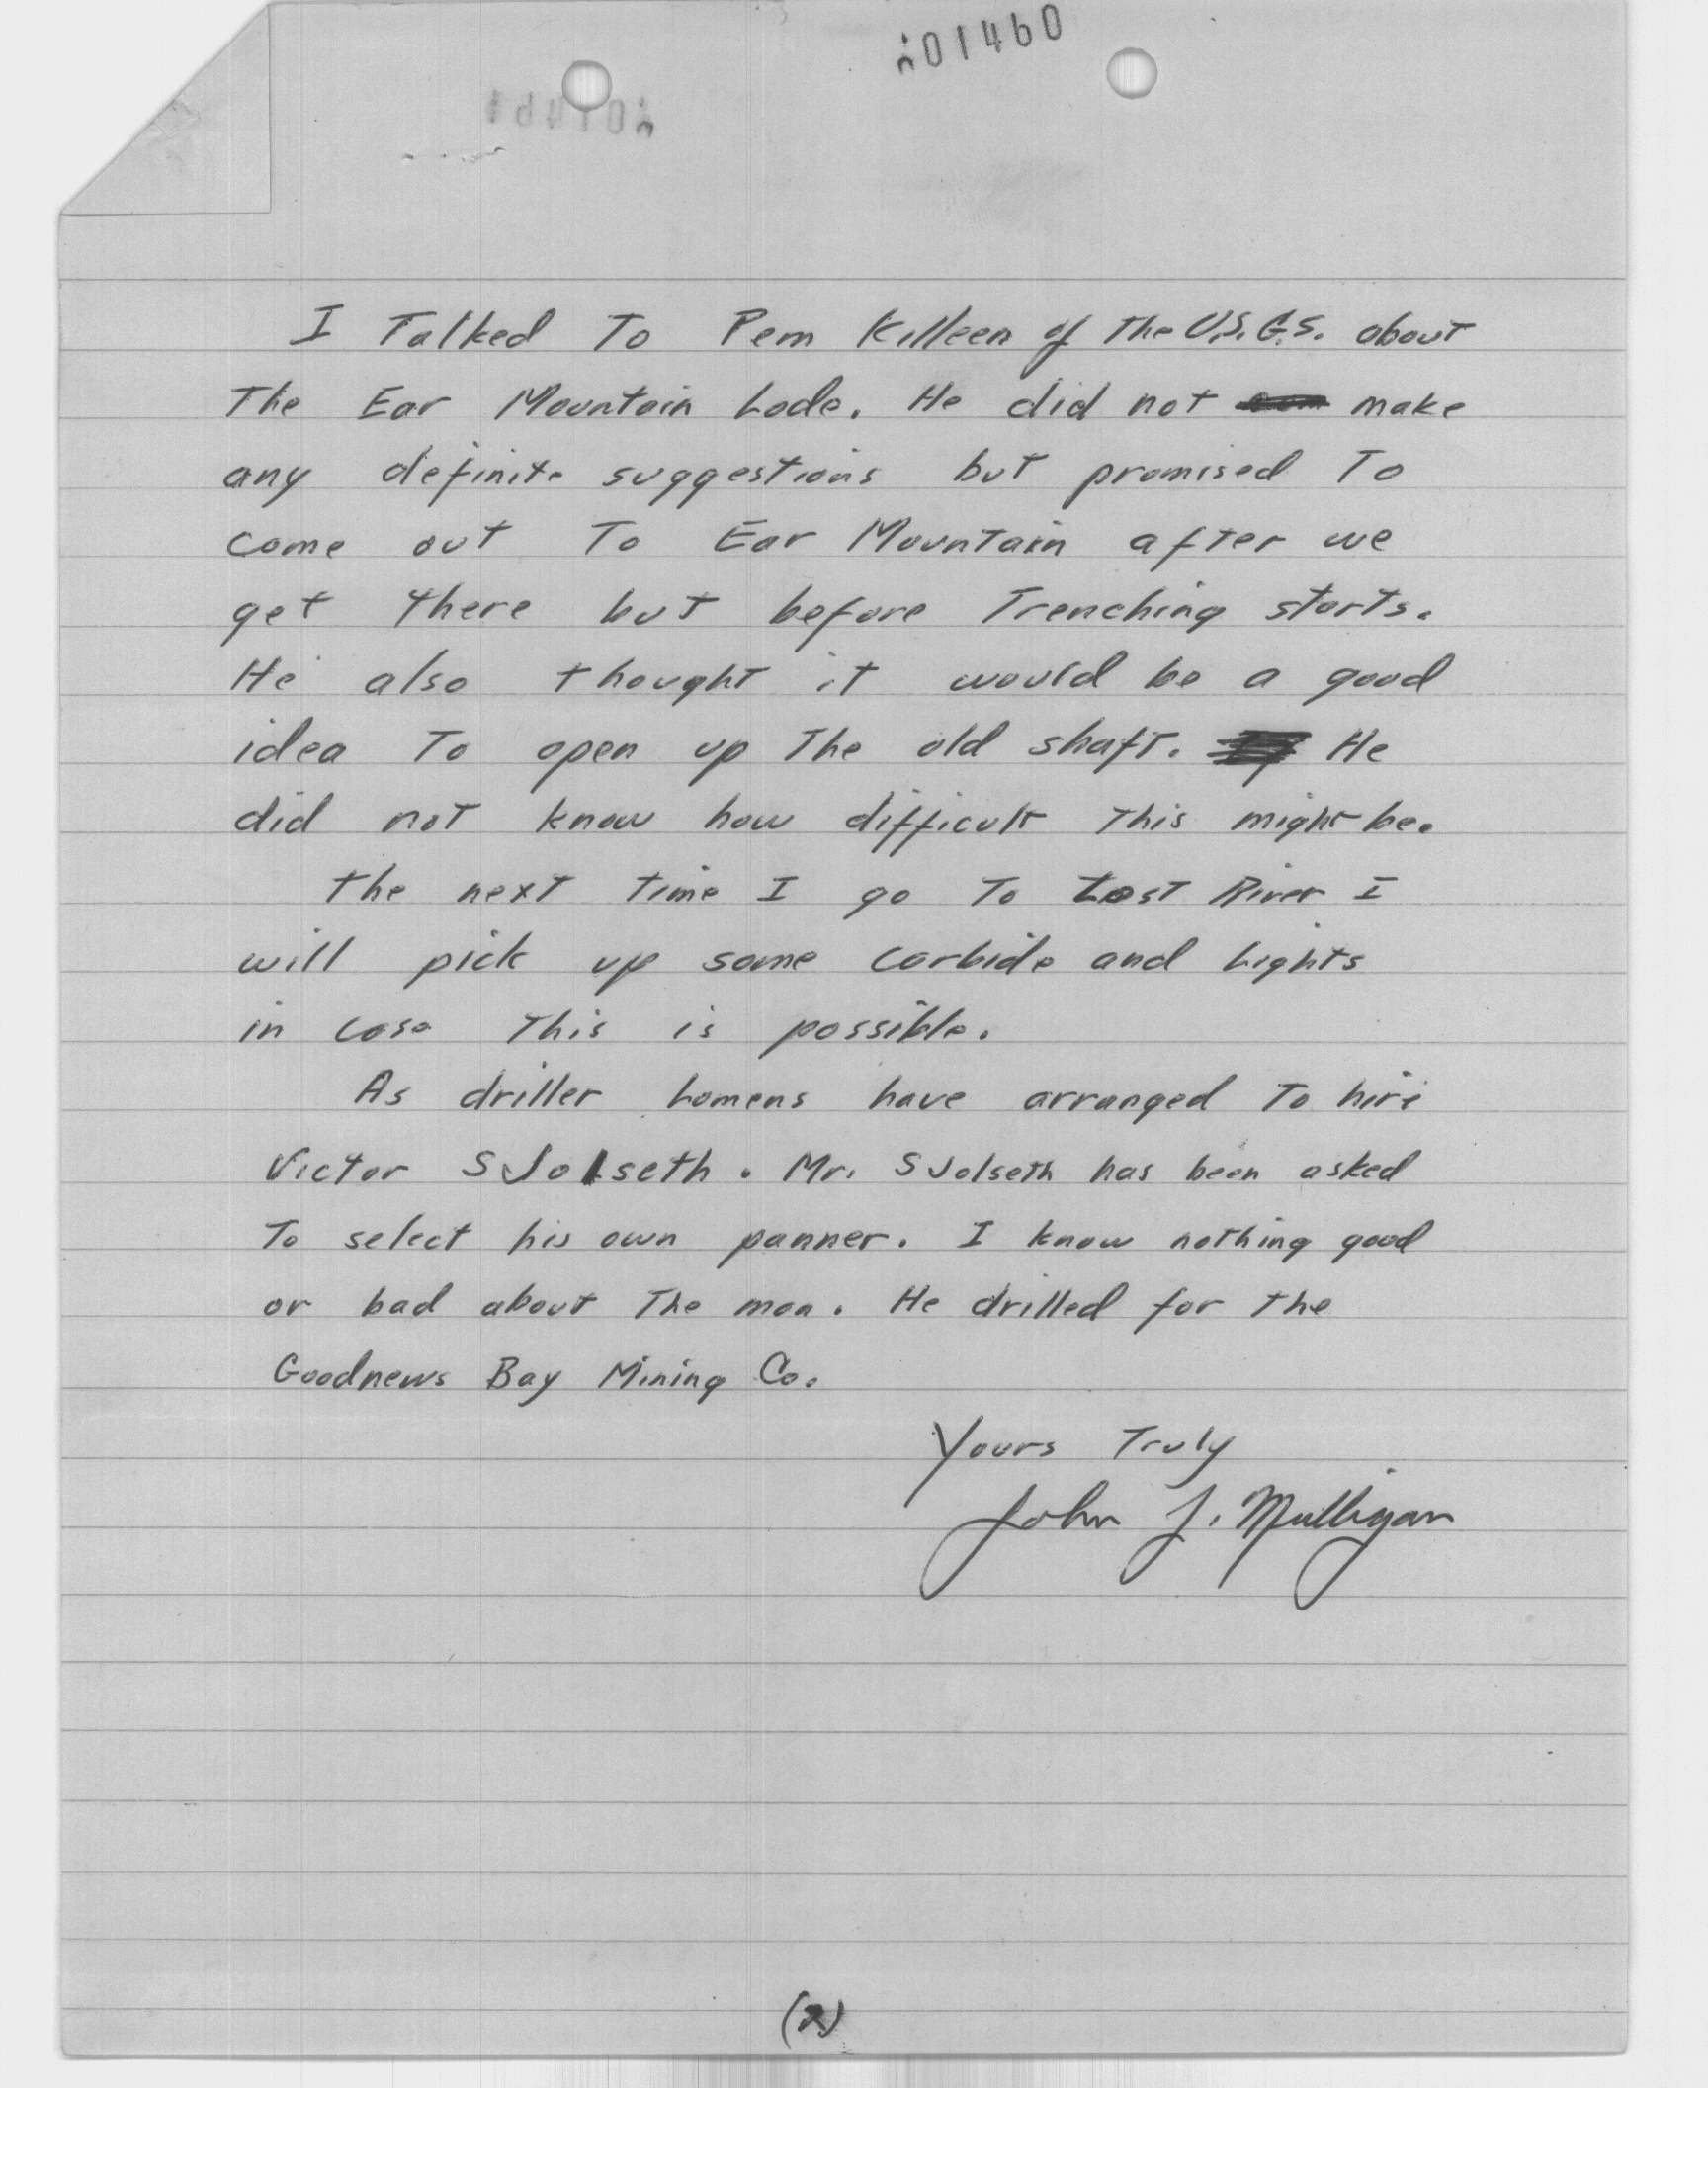 01460
I Talked To Pem Killeen of The U.S.G.S. about
The Ear Mountain Lode. He did not make
any definite suggestions but promised To
come out To Ear Mountain after we
get there but before Trenching starts.
He also thought it would be a good
idea To open up The old shaft. He
did not know how difficult This might be.
The next Time I go To Lost River I
will pick up some carbide and Lights
in case This is possible.
As driller Lomens have arranged To hire
Victor SJolseth. Mr. SJolseth has been asked
To select his own panner. I know nothing good
or bad about The man. He drilled for the
Goodnews Bay Mining Co.
Yours Truly
John J. Mulligan
(2)